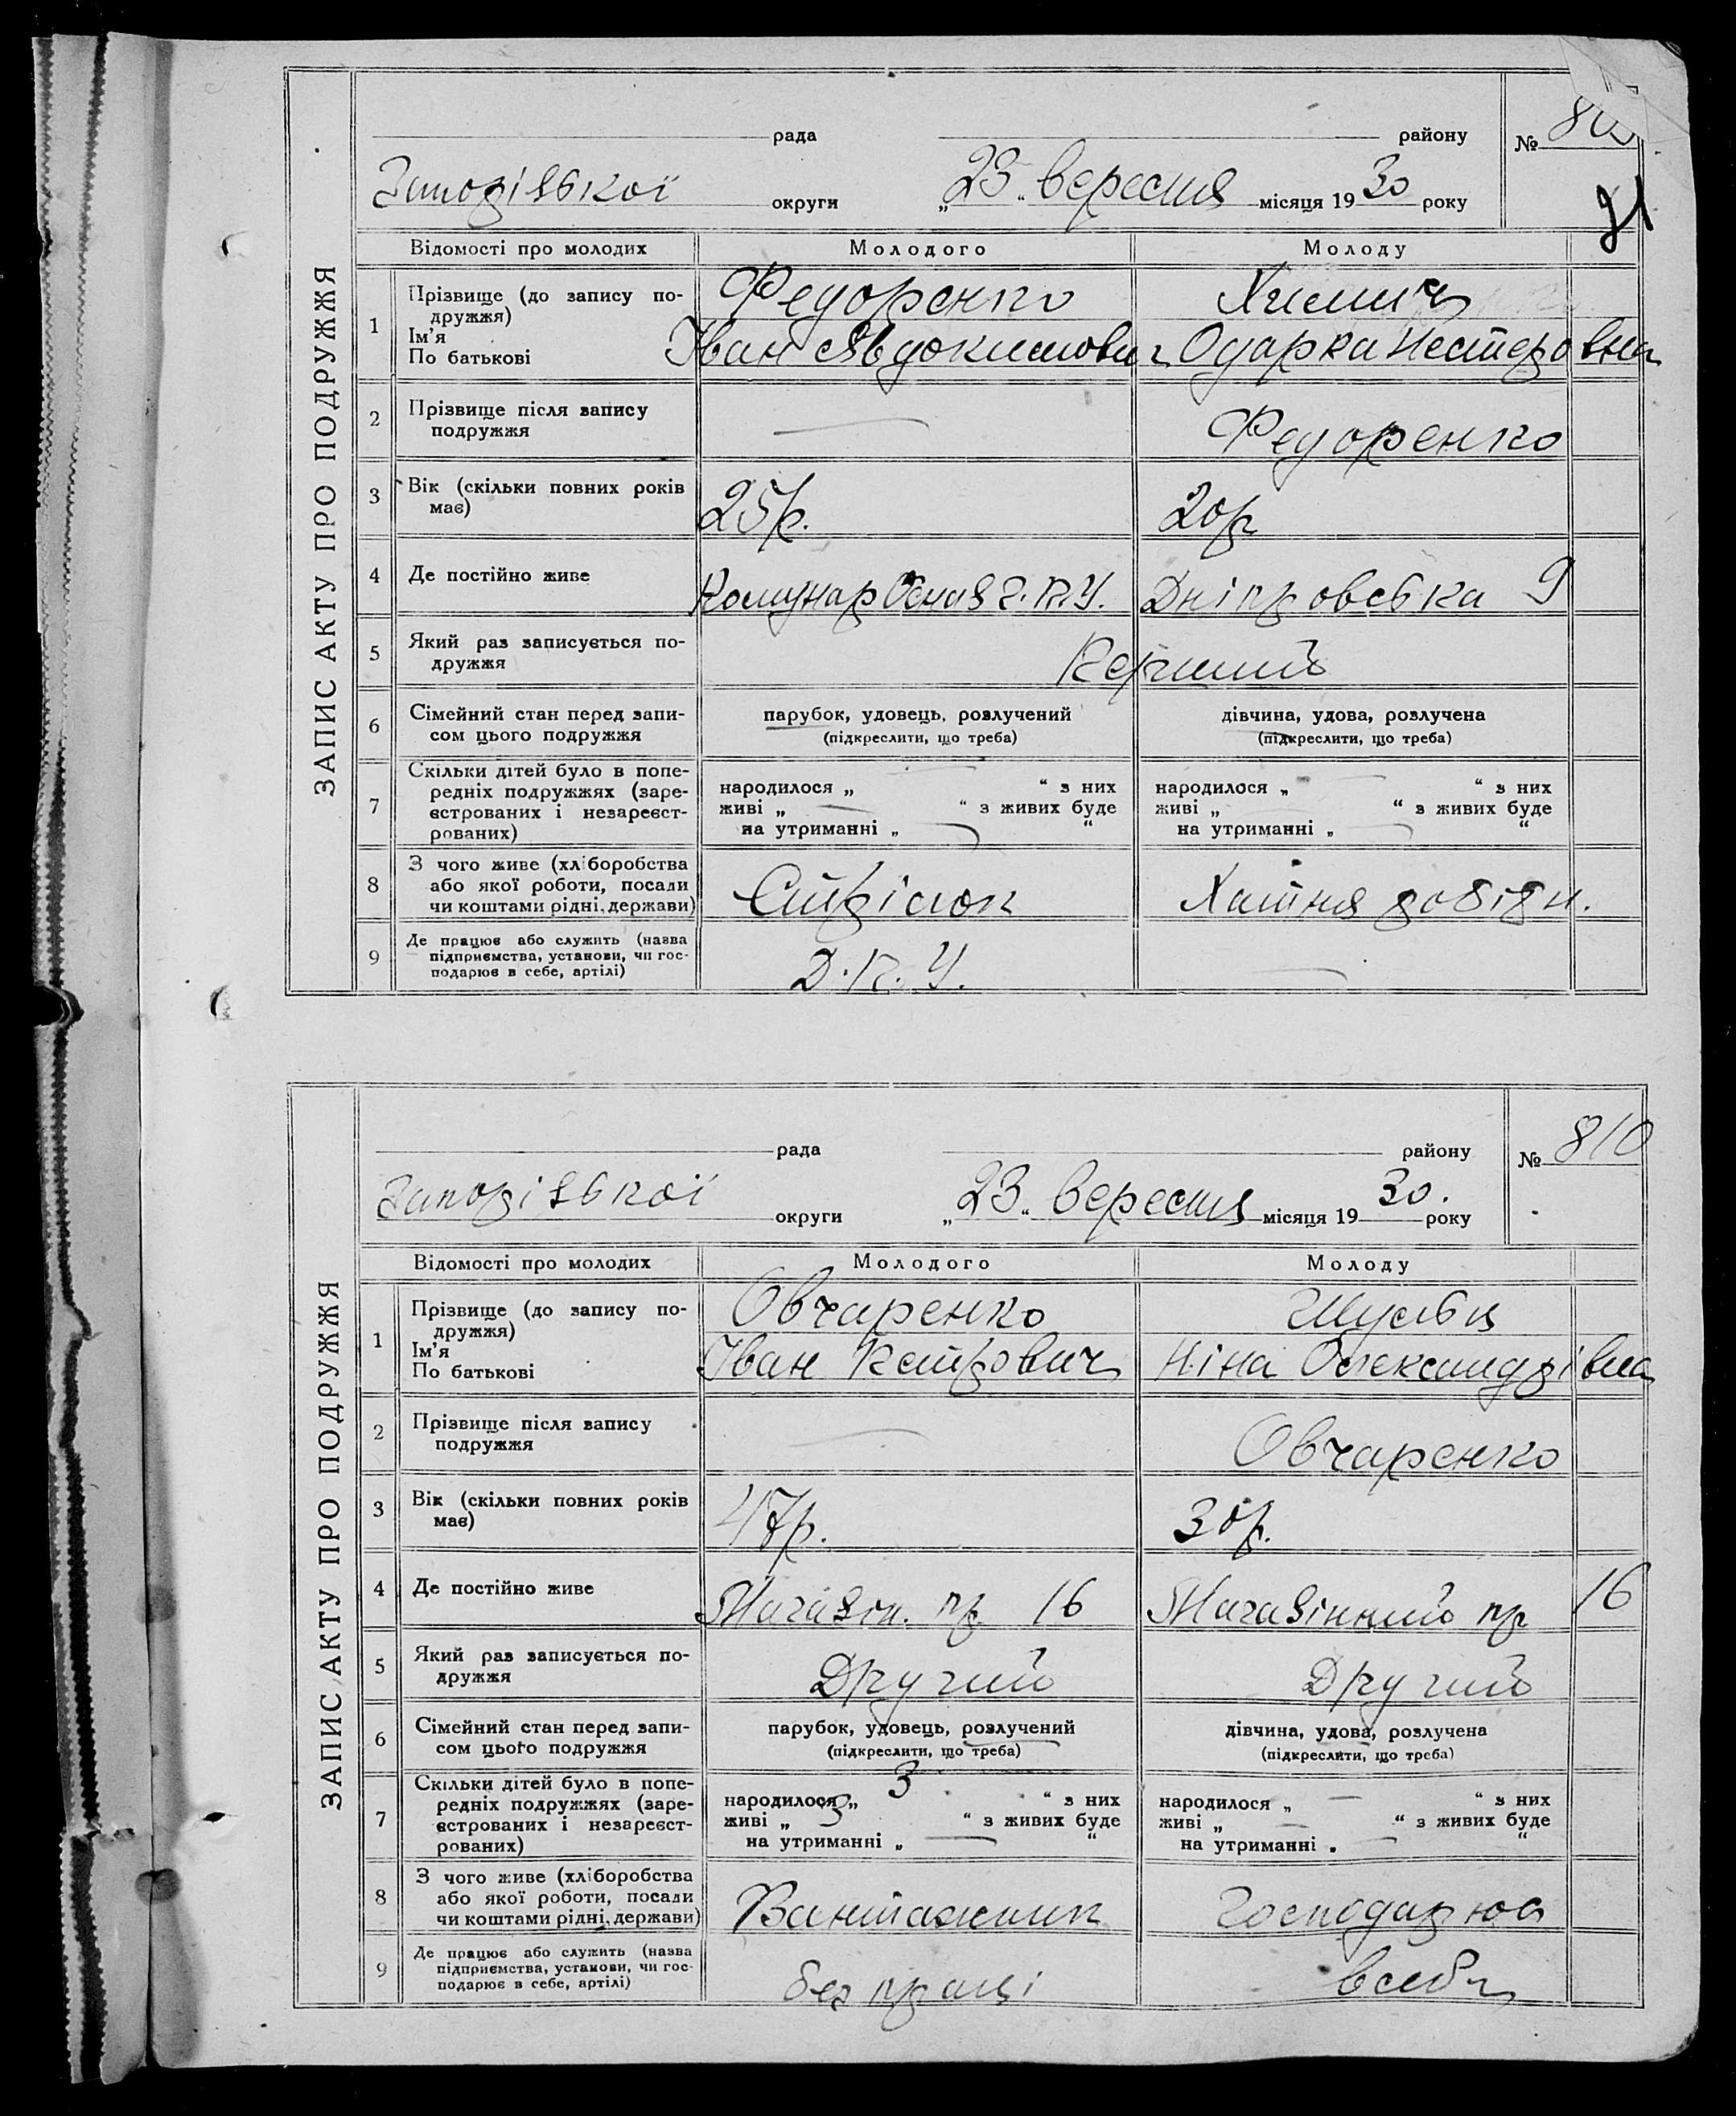 ЗАПИС АКТУ ПРО ПОДРУЖЖЯ
рада району № 809
Запорізької округи „23“ вересня місяця 1930 року
91
Відомості про молодих Молодого Молоду
1 Прізвище (до запису по- Федоренко Химич
дружжя)
Ім'я Іван Явдокимович Одарка Нестеровна
По батькові
2 Прізвище після запису — Федоренко
подружжя
3 Вік (скільки повних років 25р. 20р
має)
4 Де постійно живе Комунар Д.П.У. Дніпровська 9
5 Який раз записується по- Перший
дружжя
6 Сімейний стан перед запи- парубок, удовець, розлучений дівчина, удова, розлучена
сом цього подружжя (підкреслити, що треба) (підкреслити, що треба)
7 Скільки дітей було в попе-
редніх подружжях (заре- народилося „ — “ з них народилося „ — “ з них
єстрованих і незареєст- живі „ — “ з живих буде живі „ — “ з живих буде
рованих) на утриманні „ — “ на утриманні „ — “
8 З чого живе (хліборобства
або якої роботи, посади Стрілок Хатня робітн.
чи коштами рідні, держави)
9 Де працює або служить (назва
підприємства, установи, чи гос- Д.П.У. —
подарює в себе, артілі)
ЗАПИС АКТУ ПРО ПОДРУЖЖЯ
рада району № 810
Запорізької округи „23“ вересня місяця 1930. року
Відомості про молодих Молодого Молоду
1 Прізвище (до запису по- Овчаренко Шульц
дружжя)
Ім'я Іван Петрович Ніна Олександрівна
По батькові
2 Прізвище після запису — Овчаренко
подружжя
3 Вік (скільки повних років 47р. 30р.
має)
4 Де постійно живе Магазін. пр 16 Магазінний пр 16
5 Який раз записується по- Другий Другий
дружжя
6 Сімейний стан перед запи- парубок, удовець, розлучений дівчина, удова, розлучена
сом цього подружжя (підкреслити, що треба) (підкреслити, що треба)
7 Скільки дітей було в попе-
редніх подружжях (заре- народилося „ 3 “ з них народилося „ — “ з них
єстрованих і незареєст- живі „ 3 “ з живих буде живі „ — “ з живих буде
рованих) на утриманні „ — “ на утриманні „ — “
8 З чого живе (хліборобства
або якої роботи, посади Вантажник Господарює
чи коштами рідні, держави)
9 Де працює або служить (назва
підприємства, установи, чи гос- без праці в себе
подарює в себе, артілі)